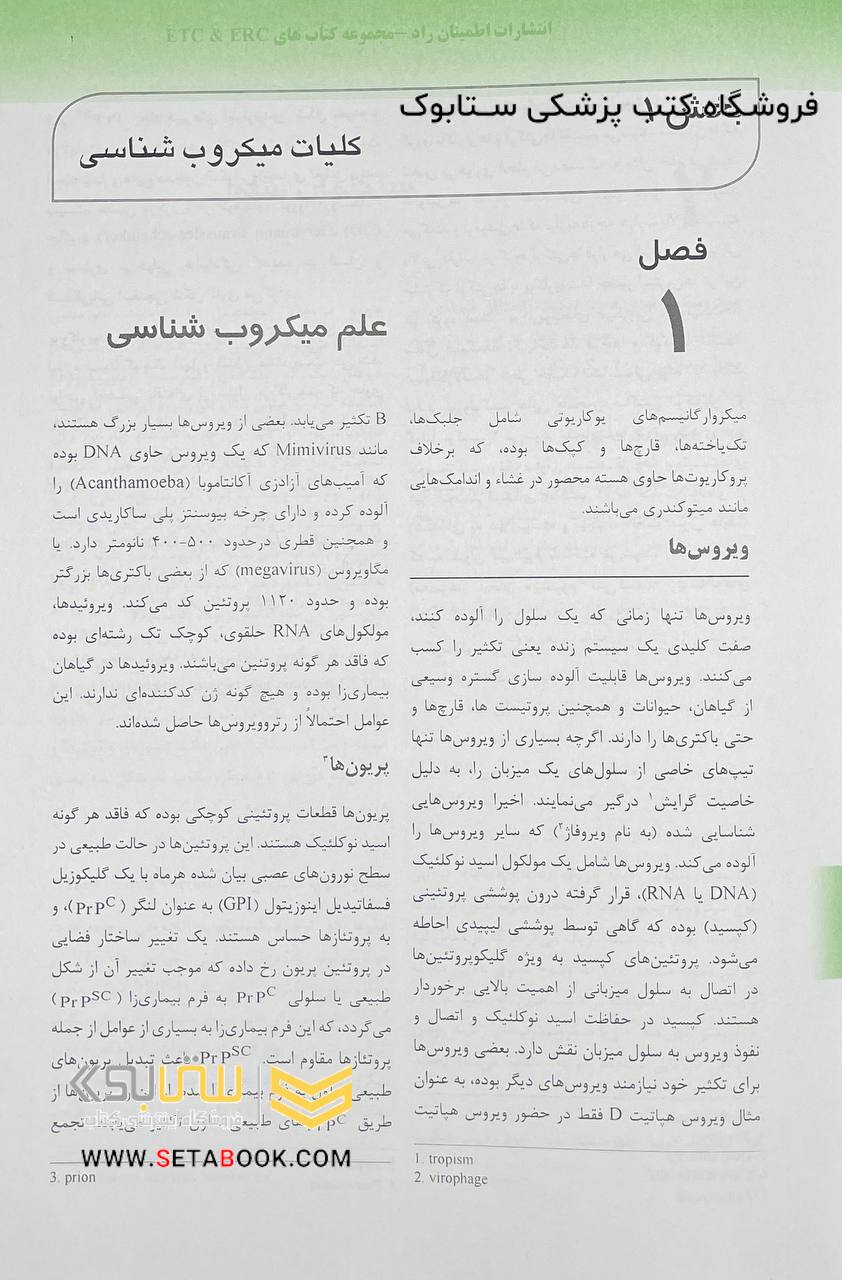 انتشارات اطمینان راد –مجموعه کتاب های ETC & ERC
۱
فروشگاه کتب پزشکی ستابوک
بخش ۱
کلیات میکروب شناسی
فصل
۱
علم میکروب شناسی
میکروارگانیسم‌های یوکاریوتی شامل جلبک‌ها،
تک‌یاخته‌ها، قارچ‌ها و کپک‌ها بوده، که برخلاف
پروکاریوت‌ها حاوی هسته محصور در غشاء و اندامک‌هایی
مانند میتوکندری می‌باشند.
ویروس‌ها
ویروس‌ها تنها زمانی که یک سلول را آلوده کنند،
صفت کلیدی یک سیستم زنده یعنی تکثیر را کسب
می‌کنند. ویروس‌ها قابلیت آلوده سازی گستره وسیعی
از گیاهان، حیوانات و همچنین پروتیست ها، قارچ‌ها و
حتی باکتری‌ها را دارند. اگرچه بسیاری از ویروس‌ها تنها
تیپ‌های خاصی از سلول‌های یک میزبان را، به دلیل
خاصیت گرایش۱ درگیر می‌نمایند. اخیرا ویروس‌هایی
شناسایی شده (به نام ویروفاژ۲) که سایر ویروس‌ها را
آلوده می‌کند. ویروس‌ها شامل یک مولکول اسید نوکلئیک
(DNA یا RNA)، قرار گرفته درون پوششی پروتئینی
(کپسید) بوده که گاهی توسط پوششی لیپیدی احاطه
می‌شود. پروتئین‌های کپسید به ویژه گلیکوپروتئین‌ها
در اتصال به سلول میزبانی از اهمیت بالایی برخوردار
هستند. کپسید در حفاظت اسید نوکلئیک و اتصال و
نفوذ ویروس به سلول میزبان نقش دارد. بعضی ویروس‌ها
برای تکثیر خود نیازمند ویروس‌های دیگر بوده، به عنوان
مثال ویروس هپاتیت D فقط در حضور ویروس هپاتیت
1. tropism
2. virophage
B تکثیر می‌یابد. بعضی از ویروس‌ها بسیار بزرگ هستند،
مانند Mimivirus که یک ویروس حاوی DNA بوده
که آمیب‌های آزادزی آکانتاموبا (Acanthamoeba) را
آلوده کرده و دارای چرخه بیوسنتز پلی ساکاریدی است
و همچنین قطری درحدود ۵۰۰-۴۰۰ نانومتر دارد. یا
مگاویروس (megavirus) که از بعضی باکتری‌ها بزرگتر
بوده و حدود ۱۱۲۰ پروتئین کد می‌کند. ویروئیدها،
مولکول‌های RNA حلقوی، کوچک تک رشته‌ای بوده
که فاقد هر گونه پروتئین می‌باشند. ویروئیدها در گیاهان
بیماری‌زا بوده و هیچ گونه ژن کدکننده‌ای ندارند. این
عوامل احتمالاً از رتروویروس‌ها حاصل شده‌اند.
پریون‌ها۳
پریون‌ها قطعات پروتئینی کوچکی بوده که فاقد هر گونه
اسید نوکلئیک هستند. این پروتئین‌ها در حالت طبیعی در
سطح نورون‌های عصبی بیان شده هرماه با یک گلیکوزیل
فسفاتیدیل اینوزیتول (GPI) به عنوان لنگر (PrPC)، و
به پروتئازها حساس هستند. یک تغییر ساختار فضایی
در پروتئین پریون رخ داده که موجب تغییر آن از شکل
طبیعی یا سلولی PrPC به فرم بیماری‌زا (PrPSC)
می‌گردد، که این فرم بیماری‌زا به بسیاری از عوامل از جمله
پروتئازها مقاوم است. PrPSC باعث تبدیل پریون‌های
طبیعی
طریق PrPC های طبیعی تجمع
3. prion
ستابوک
فروشگاه اینترنتی کتاب
WWW.SETABOOK.COM